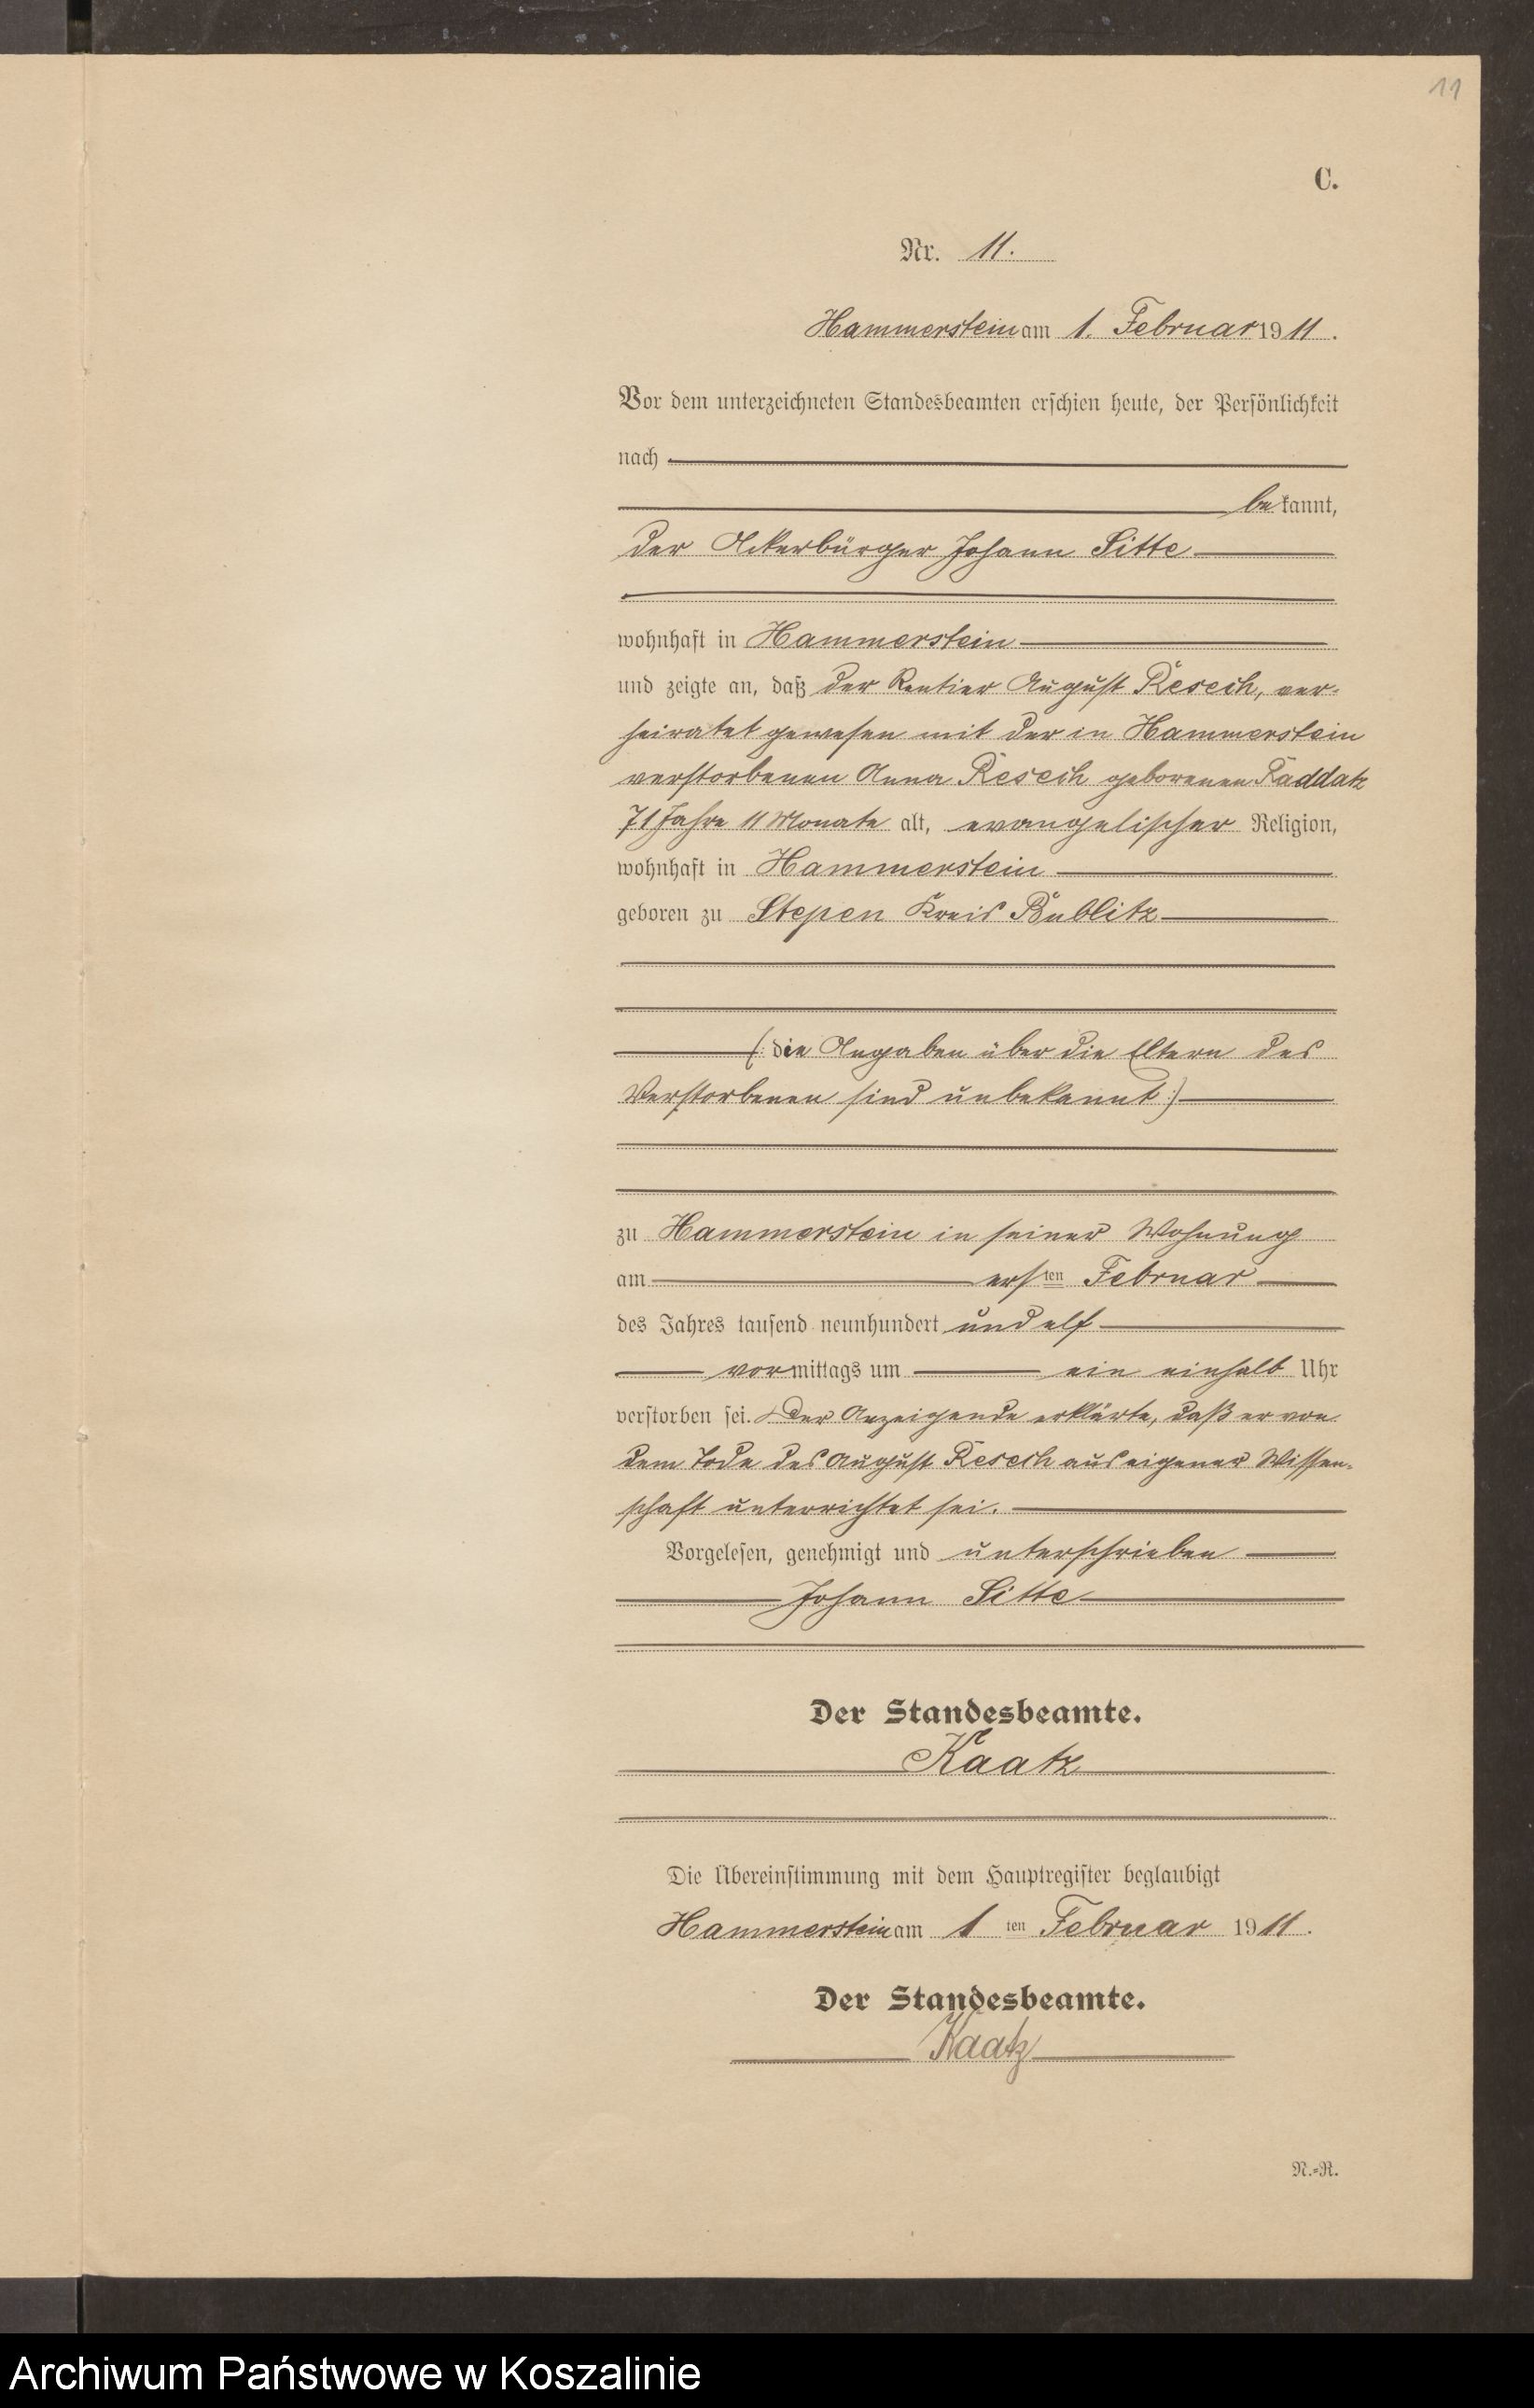 11
C.
Nr. 11.
Hammerstein am 1. Februar 1911.
Vor dem unterzeichneten Standesbeamten erschien heute, der Persönlichkeit
nach
bekannt,
der Ackerbürger Johann Sitte
wohnhaft in Hammerstein
und zeigte an, daß der Rentier August Resech, ver-
heiratet gewesen mit der in Hammerstein
verstorbenen Anna Resech geborenen Raddatz
71 Jahre 11 Monate alt, evangelischer Religion,
wohnhaft in Hammerstein
geboren zu Stepen Kreis Bublitz
(: die Angaben über die Eltern des
Verstorbenen sind unbekannt :)
zu Hammerstein in seiner Wohnung
am ersten Februar
des Jahres tausend neunhundert und elf
vormittags um ein einhalb Uhr
verstorben sei. Der Anzeigende erklärte, daß er von
dem Tode des August Resech aus eigener Wissen-
schaft unterrichtet sei.
Vorgelesen, genehmigt und unterschrieben
Johann Sitte
Der Standesbeamte.
Kaatz
Die Übereinstimmung mit dem Hauptregister beglaubigt
Hammerstein am 1 ten Februar 1911.
Der Standesbeamte.
Kaatz
N.=R.
Archiwum Państwowe w Koszalinie